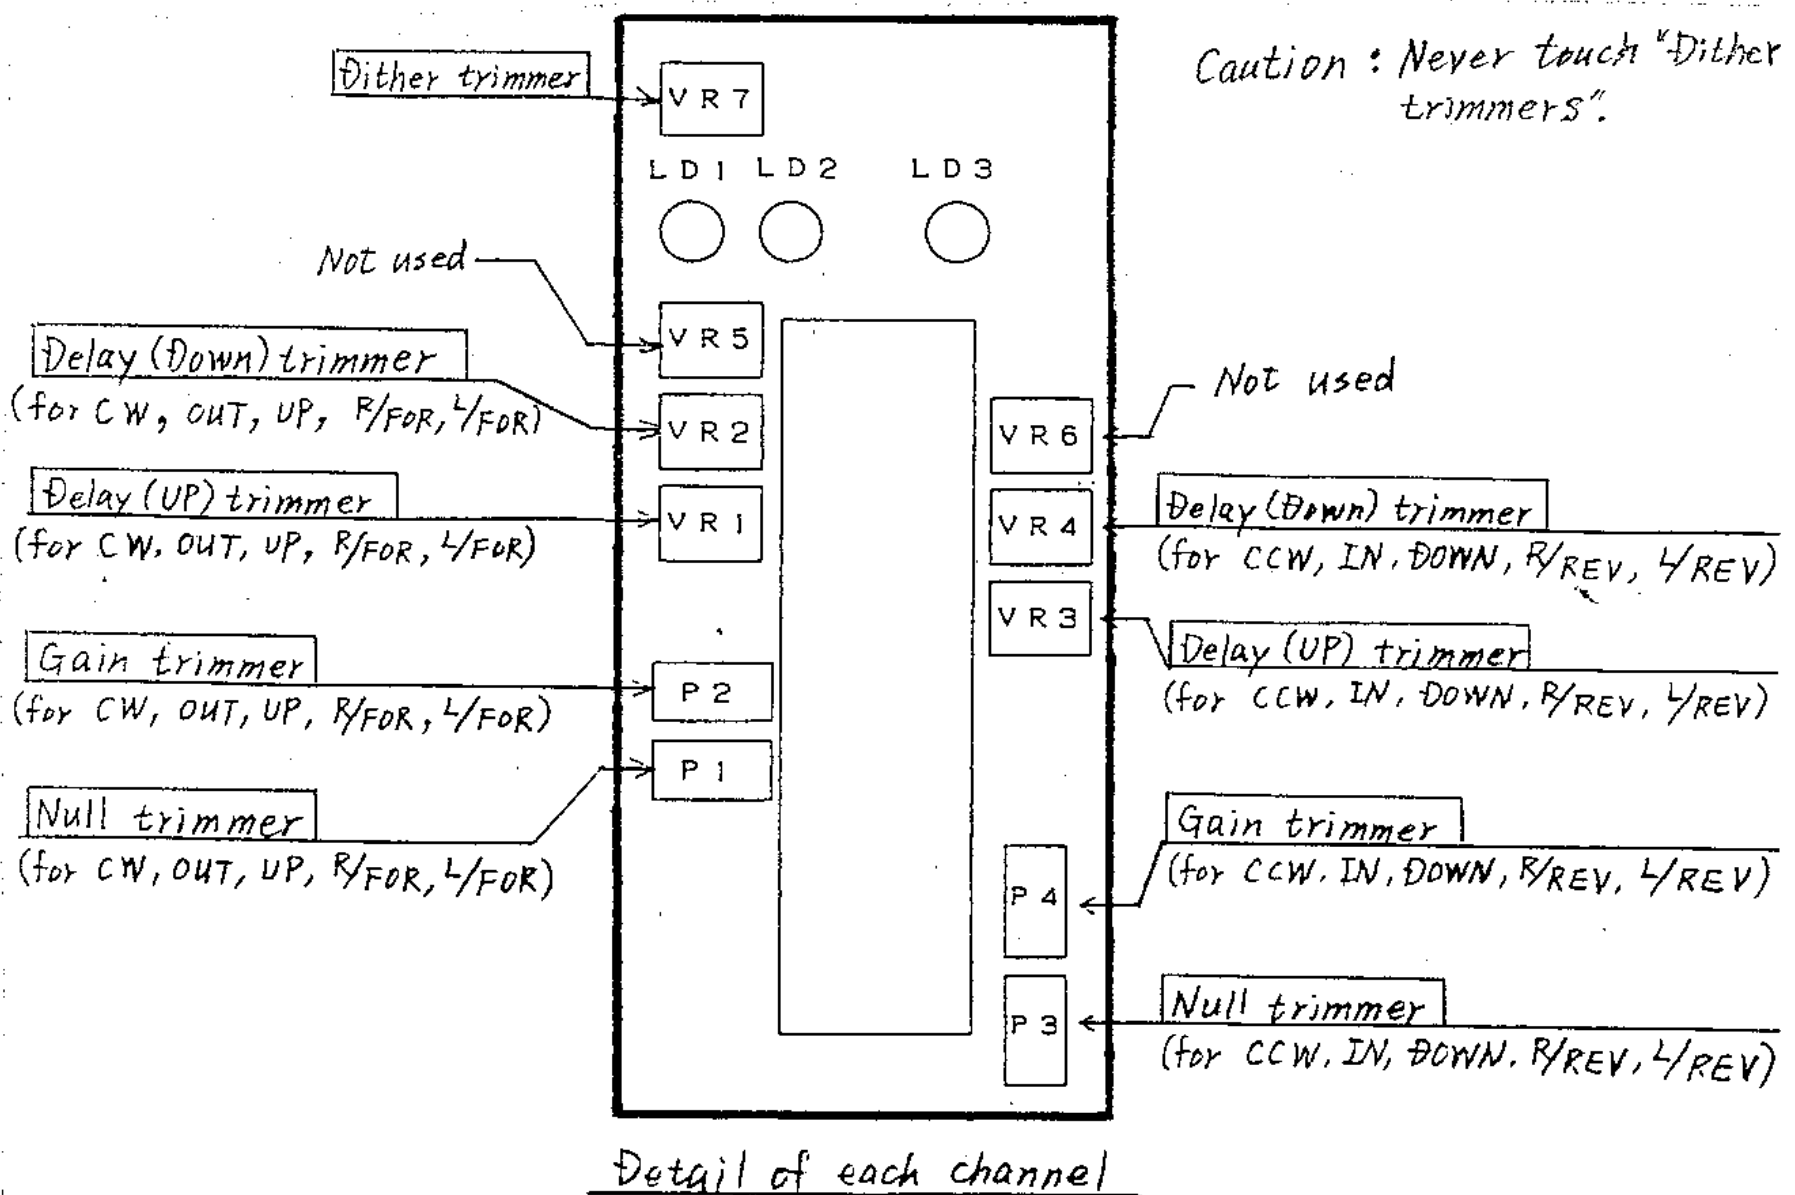 Caution : Never touch "Dither
trimmers".
Dither trimmer
VR7
LD1 LD2 LD3
Not used
VR5
Delay (Down) trimmer
(for CW, OUT, UP, R/FOR, L/FOR)
VR2
Delay (UP) trimmer
(for CW, OUT, UP, R/FOR, L/FOR)
VR1
Gain trimmer
(for CW, OUT, UP, R/FOR, L/FOR)
P2
Null trimmer
(for CW, OUT, UP, R/FOR, L/FOR)
P1
Not used
VR6
Delay (Down) trimmer
(for CCW, IN, DOWN, R/REV, L/REV)
VR4
Delay (UP) trimmer
(for CCW, IN, DOWN, R/REV, L/REV)
VR3
Gain trimmer
(for CCW, IN, DOWN, R/REV, L/REV)
P4
Null trimmer
(for CCW, IN, DOWN, R/REV, L/REV)
P3
Detail of each channel